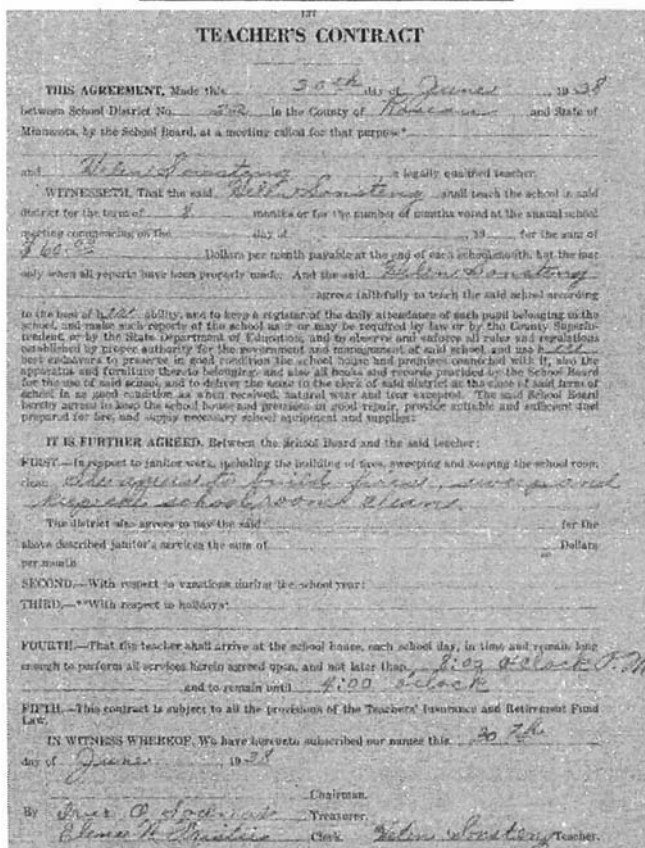 137
TEACHER'S CONTRACT
THIS AGREEMENT, Made this 30th day of June, 1938
between School District No. in the County of Roseau and State of
Minnesota, by the School Board, at a meeting called for that purpose*
and Helen Sonsteng, a legally qualified teacher.
WITNESSETH, That the said Helen Sonsteng shall teach the school in said
district for the term of 8 months or for the number of months voted at the annual school
meeting commencing on the day of , 19 for the sum of
$60.00 Dollars per month payable at the end of each school month, but the last
only when all reports have been properly made. And the said Helen Sonsteng
agrees faithfully to teach the said school according
to the best of her ability, and to keep a register of the daily attendance of each pupil belonging to the
school, and make such reports of the school as is or may be required by law or by the County Superin-
tendent, or by the State Department of Education, and to observe and enforce all rules and regulations
established by proper authority for the government and management of said school, and use her
best endeavors to preserve in good condition the school house and premises connected with it, also the
apparatus and furniture thereto belonging, and also all books and records provided by the School Board
for the use of said school, and to deliver the same to the clerk of said district at the close of said term of
school in as good condition as when received, natural wear and tear excepted. The said School Board
hereby agrees to keep the school house and premises in good repair, provide suitable and sufficient fuel
prepared for fire, and supply necessary school equipment and supplies:
IT IS FURTHER AGREED, Between the School Board and the said teacher:
FIRST.—In respect to janitor work, including the building of fires, sweeping and keeping the school room
clean She agrees to build fires, sweep and
keep the school room clean.
The district also agrees to pay the said for the
above described janitor's services the sum of Dollars
per month
SECOND.—With respect to vacations during the school year:
THIRD.—**With respect to holidays*
FOURTH.—That the teacher shall arrive at the school house, each school day, in time and remain long
enough to perform all services herein agreed upon, and not later than 8:00 o'clock
and to remain until 4:00 o'clock
FIFTH.—This contract is subject to all the provisions of the Teachers' Insurance and Retirement Fund
Law.
IN WITNESS WHEREOF, We have hereunto subscribed our names this 30th
day of June, 1938
Chairman.
By Treasurer.
Clerk Helen Sonsteng Teacher.